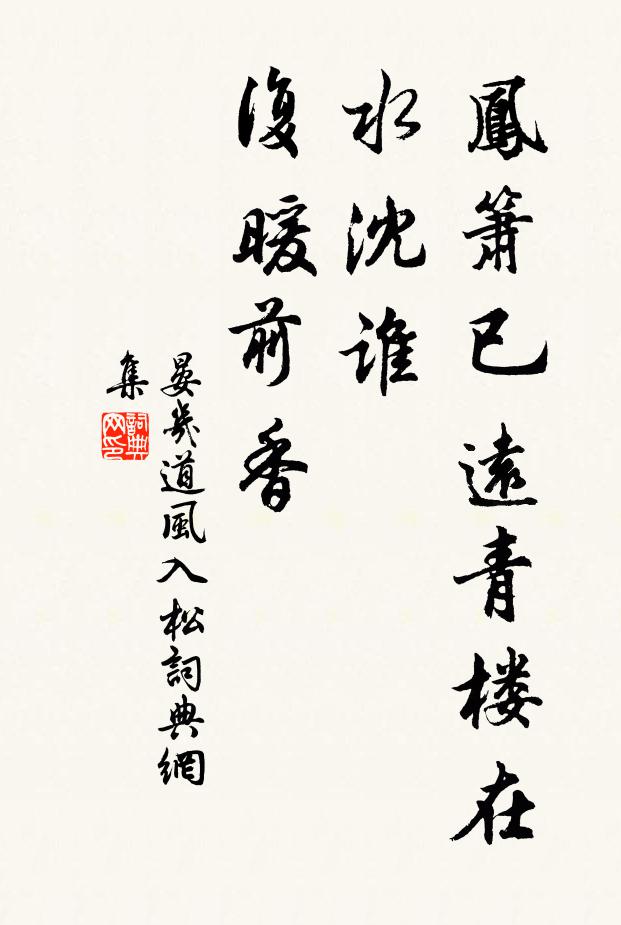 鳳簫已遠青楼在
水沈誰
復暖前香
晏幾道風入松詞典網
集
詞典网印